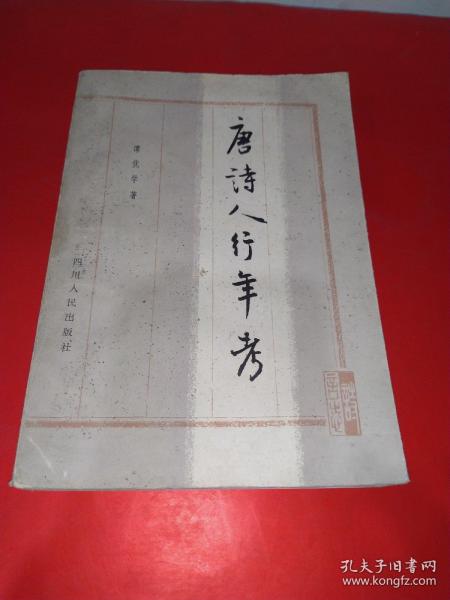 唐诗人行年考
谭优学著
四川人民出版社
孔夫子旧书网
www.kongfz.com